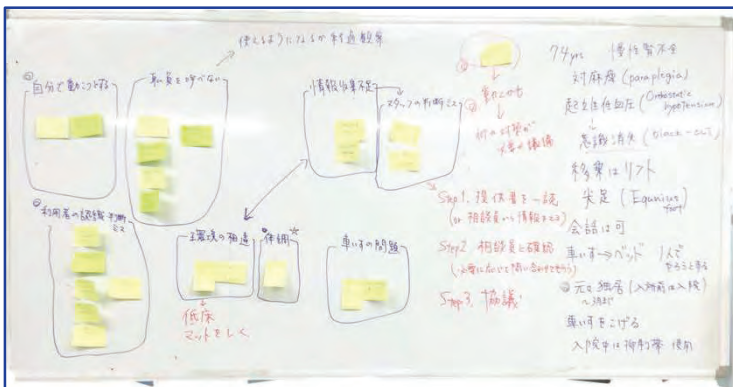 使えるようになるか経過観察
自分で動こうとする
職員を呼べない
情報収集不足
スタッフの判断ミス
利用者の認識 判断
ミス
環境の相違
体調
車いすの問題
低床
マットをしく
動くかも
Step1. 提供書を一読
(or 相談員から情報
Step2 相談員と確認
(必要に応じて問い合わせてもらう)
Step3. 協議
74yrs 慢性腎不全
対麻痺 (paraplegia)
起立性低血圧 (Orthostatic
hypotension)
↓
意識消失 (black-out)
移乗はリフト
尖足 (Equinus
foot)
会話は可
車いす→ベッド 1人で
やろうとする
元々独居 (入所前は入院)
車いすをこげる
入院中は抑制帯 使用